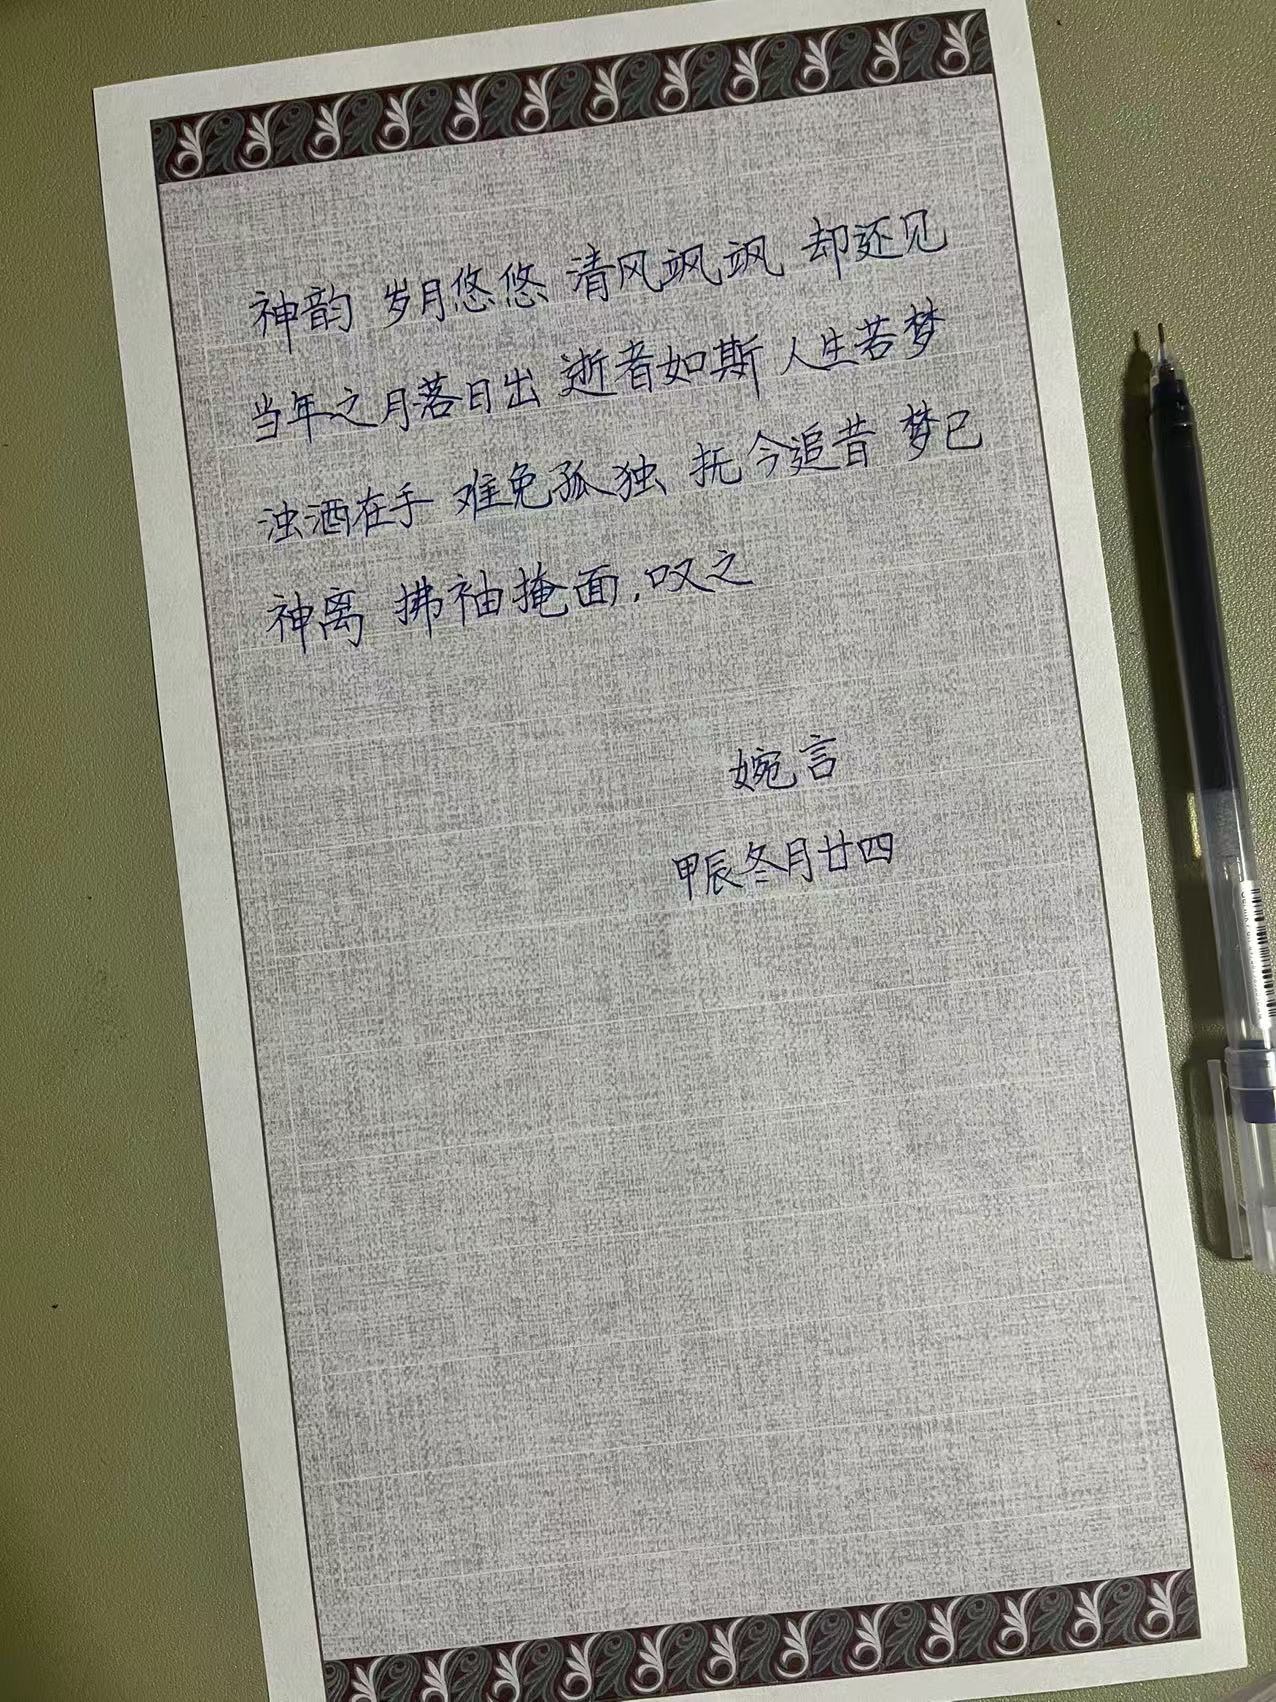 神韵 岁月悠悠 清风飒飒 却还见
当年之月落日出 逝者如斯 人生若梦
浊酒在手 难免孤独 抚今追昔 梦已
神离 拂袖掩面,叹之
婉言
甲辰冬月廿四